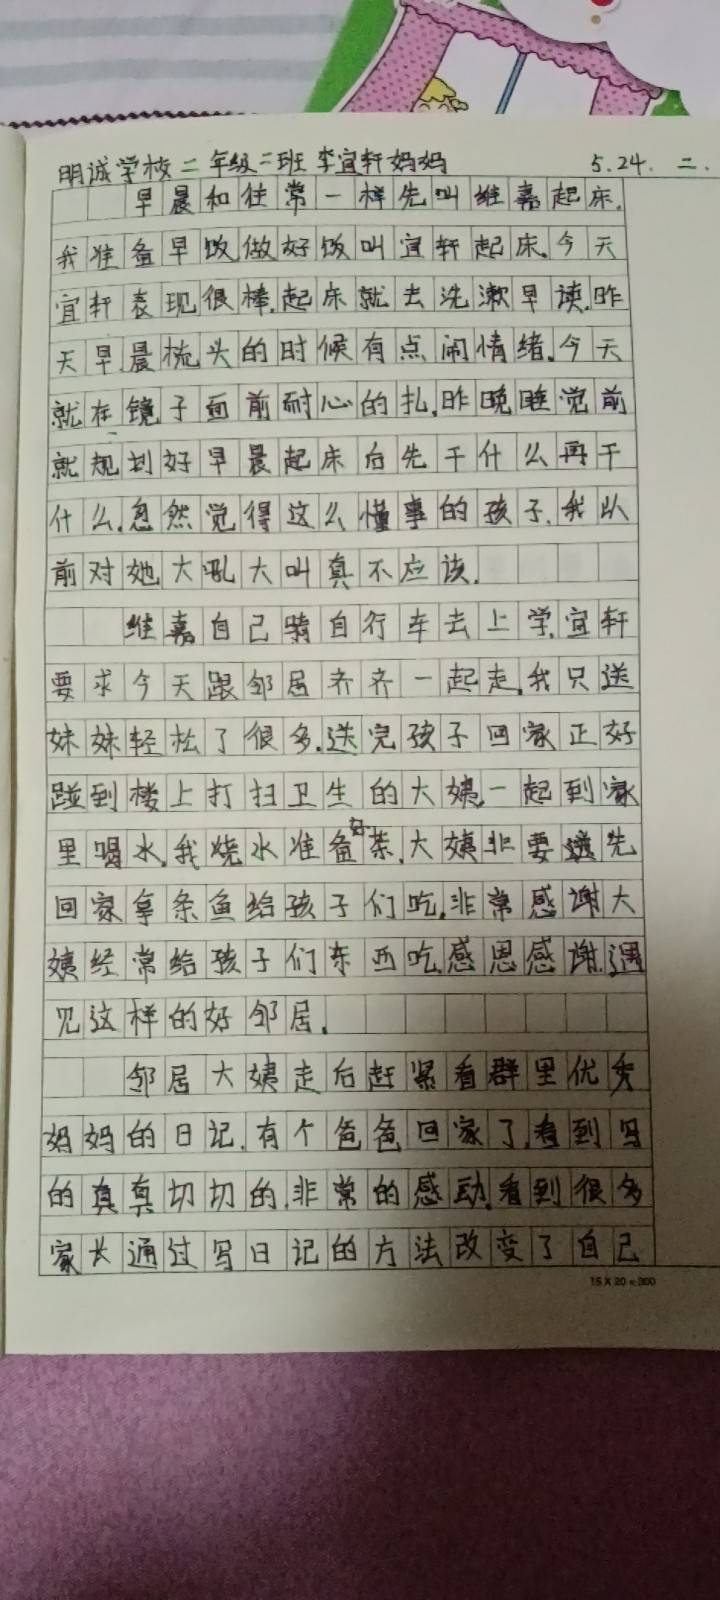 明诚学校二年级二班 李宜轩妈妈 5.24. 二.
早晨和往常一样先叫维嘉起床.
我准备早饭做好饭叫宜轩起床.今天
宜轩表现很棒.起床就去洗漱早读.昨
天早晨梳头的时候有点闹情绪.今天
就在镜子面前耐心的扎.昨晚睡觉前
就规划好早晨起床后先干什么再干
什么.忽然觉得这么懂事的孩子.我以
前对她大吼大叫真不应该.
维嘉自己骑自行车去上学.宜轩
要求今天跟邻居齐齐一起走.我只送
妹妹轻松了很多.送完孩子回家正好
碰到楼上打扫卫生的大姨一起到家
里喝水.我烧水准备好茶.大姨非要先
回家拿条鱼给孩子们吃.非常感谢大
姨经常给孩子们东西吃.感恩感谢.遇
见这样的好邻居.
邻居大姨走后赶紧看群里优秀
妈妈的日记.有个爸爸回家了.看到写
的真真切切的.非常的感动.看到很多
家长通过写日记的方法改变了自己
15×20=300